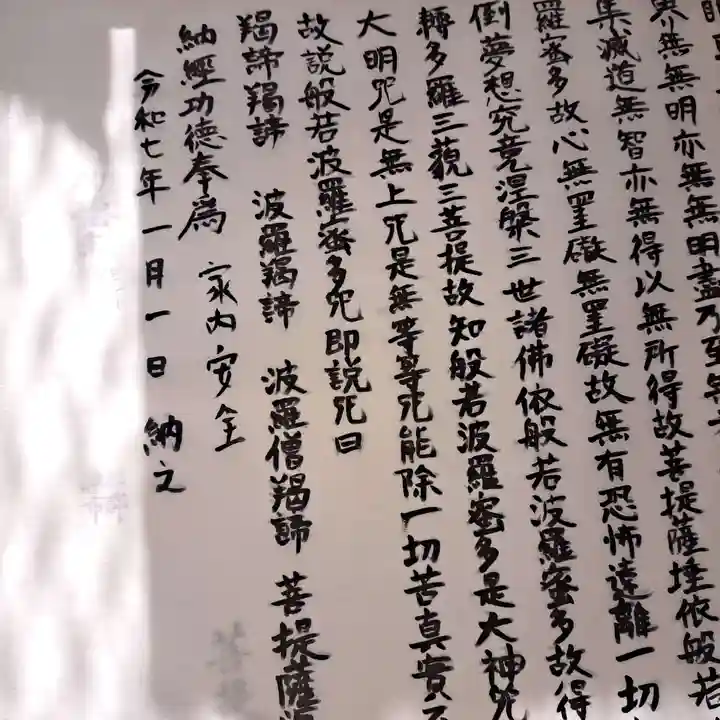 界無無明亦無無明盡乃至無
集滅道無智亦無得以無所得故菩提薩埵依般若
羅蜜多故心無罣礙無罣礙故無有恐怖遠離一切
倒夢想究竟涅槃三世諸佛依般若波羅蜜多故得
轉多羅三藐三菩提故知般若波羅蜜多是大神咒
大明咒是無上咒是無等等咒能除一切苦真實不
故説般若波羅蜜多咒即説咒曰
羯諦羯諦 波羅羯諦 波羅僧羯諦 菩提薩
納經功德奉為 家内安全
令和七年一月一日 納之